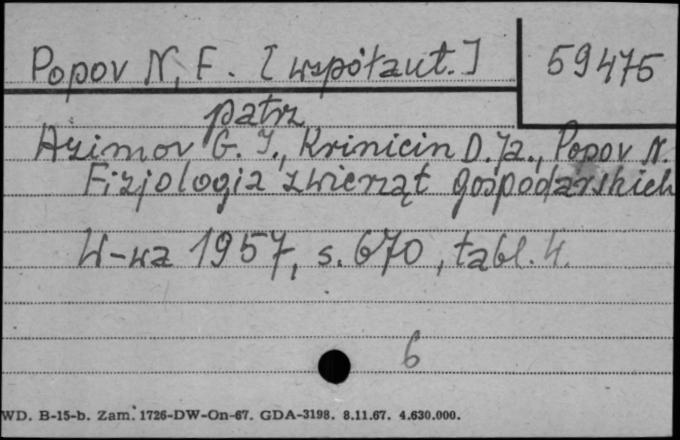 Popov N. F. [współaut.]
59475
patrz
Azimov G. I., Krinicin D. Ja., Popov N.
Fizjologia zwierząt gospodarskich
W-wa 1957, s. 670, tabl. 4.
6
WD. B-15-b. Zam. 1726-DW-On-67. GDA-3198. 8.11.67. 4.630.000.